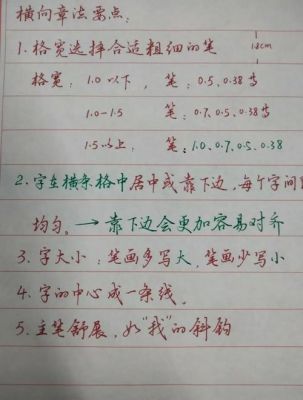 横向章法要点:
1.8cm
1.格宽选择合适粗细的笔
格宽:1.0以下, 笔:0.5、0.38等
1.0-1.5 笔:0.7、0.5、0.38等
1.5以上, 笔:1.0、0.7、0.5、0.38
2.字在横条格中居中或靠下边,每个字间
均匀。→靠下边会更加容易对齐
3.字大小:笔画多写大,笔画少写小
4.字的中心成一条线。
5.主笔舒展,如"我"的斜钩